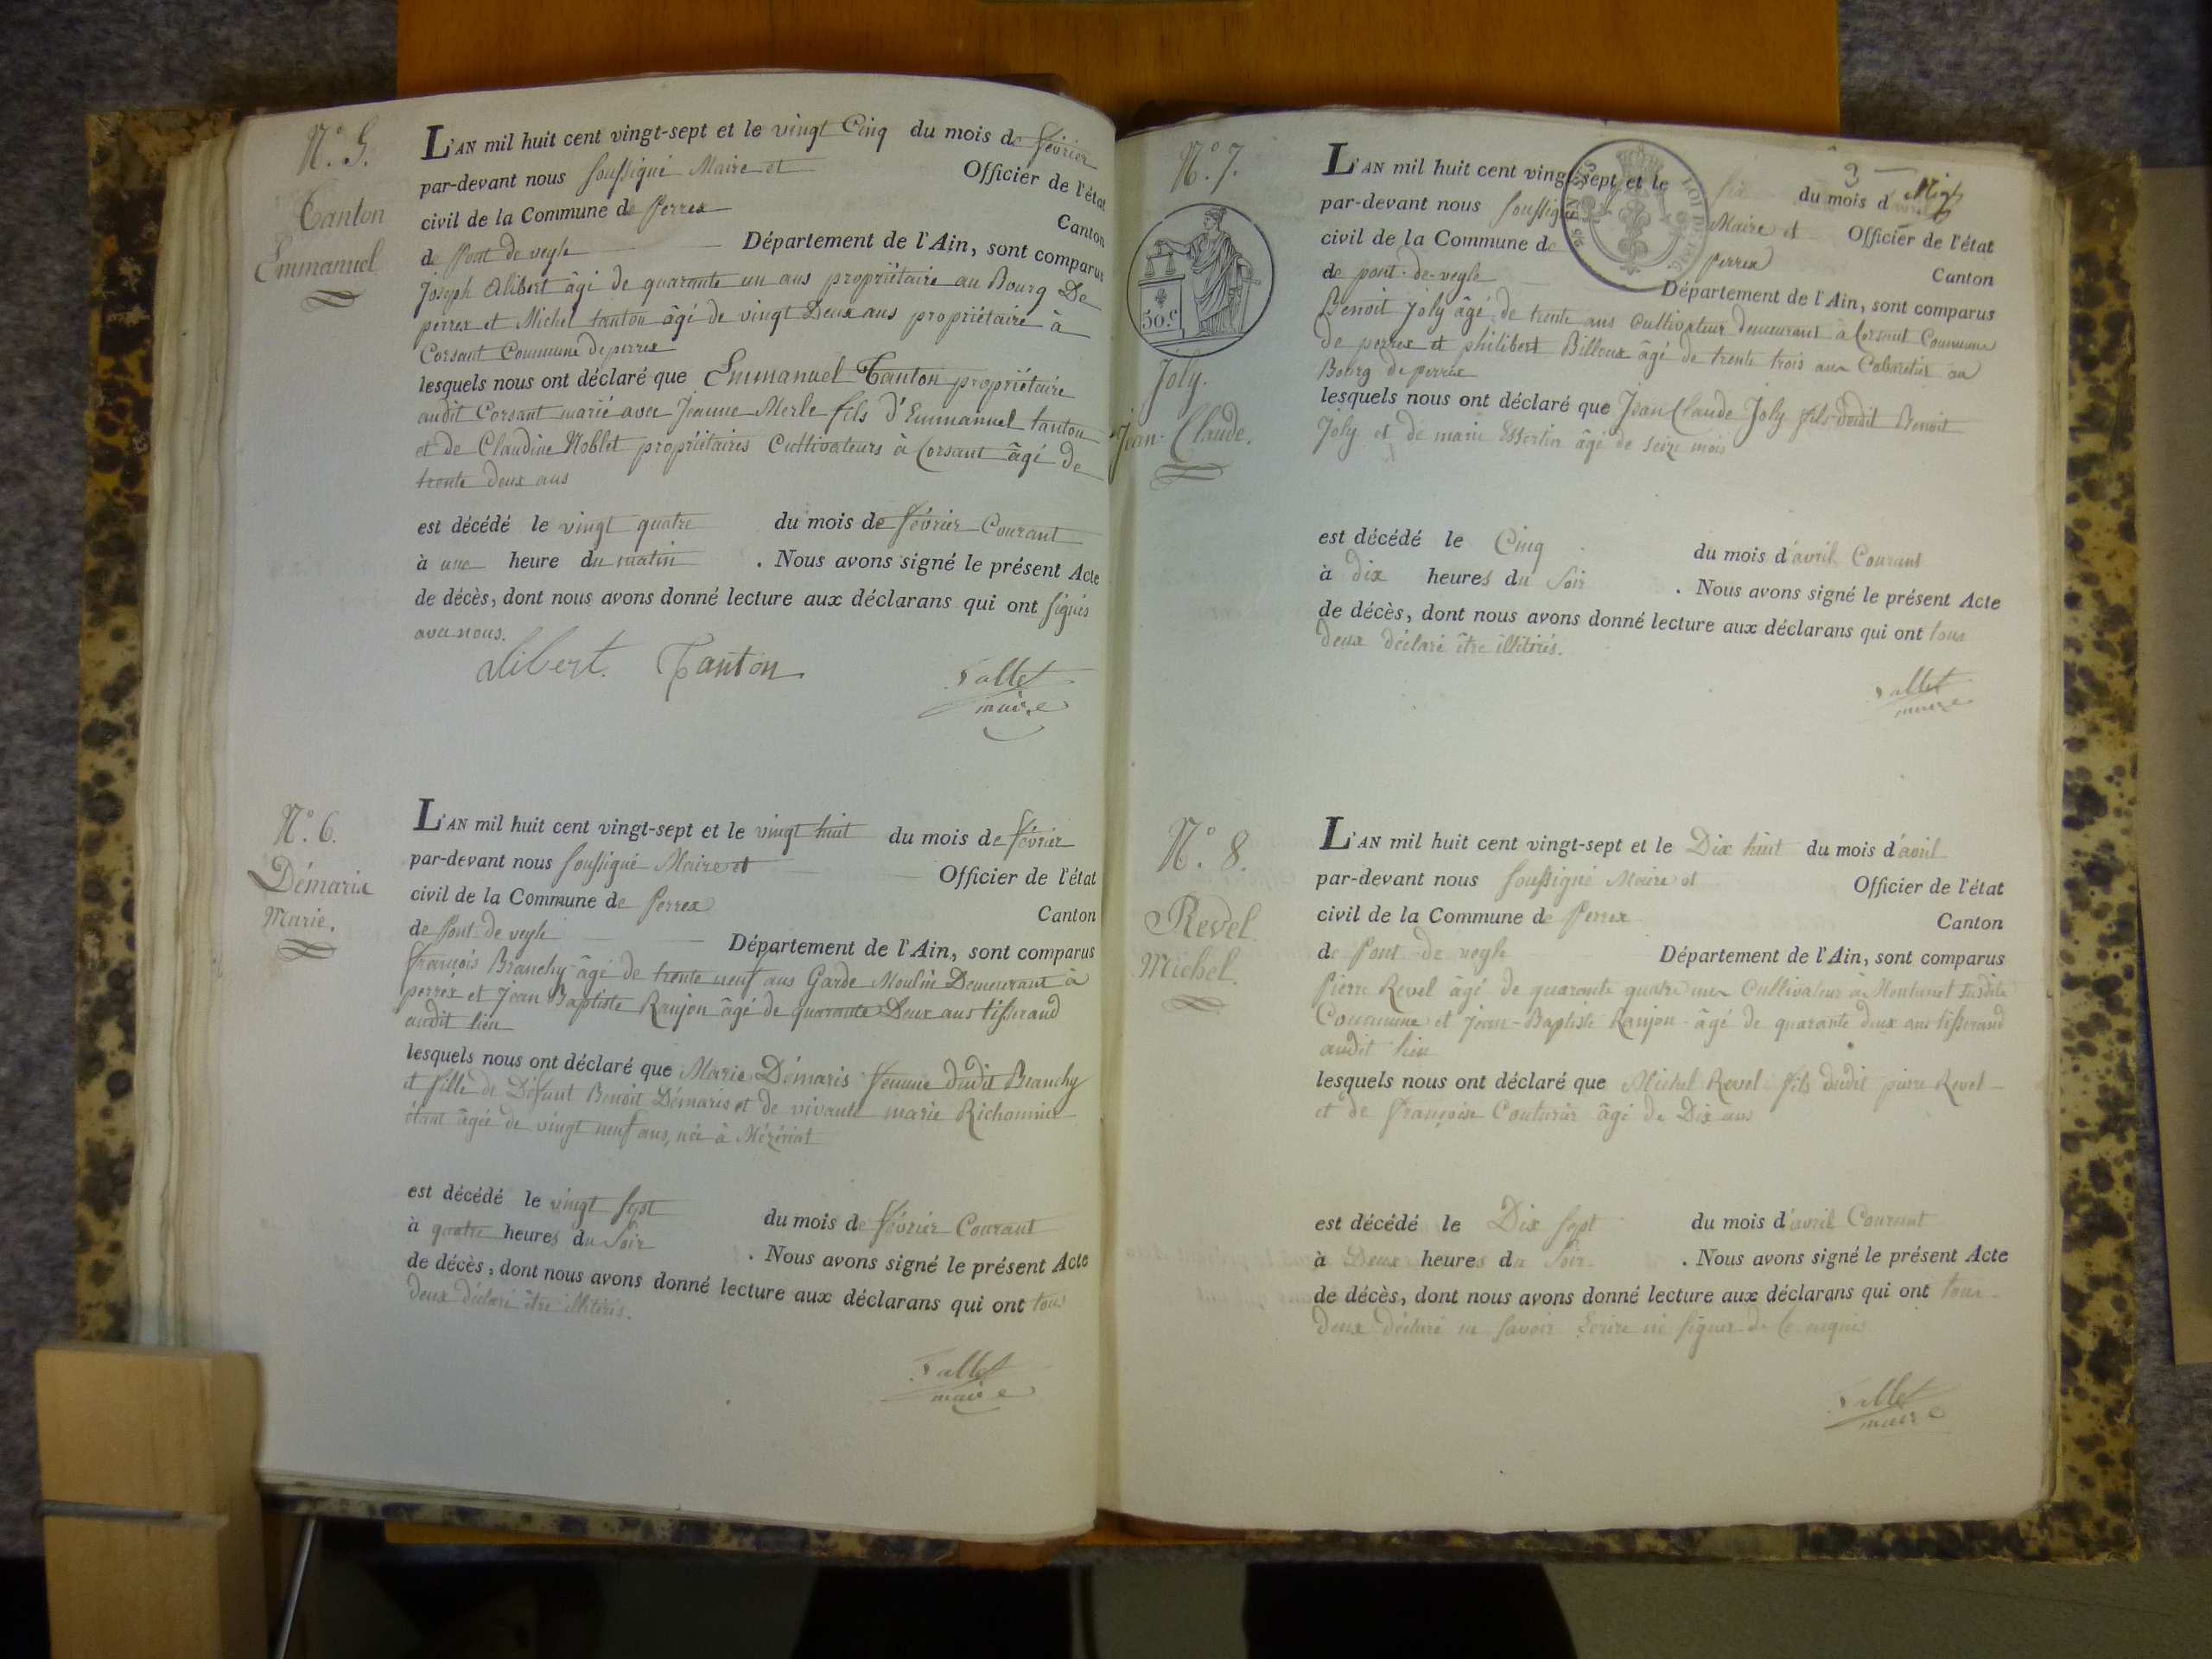 N.° 5.
Tanton
Emmanuel
L'AN mil huit cent vingt-sept et le vingt Cinq du mois de février
par-devant nous soussigné Maire et Officier de l'état
civil de la Commune de Perrex Canton
de Pont de veyle Département de l'Ain, sont comparus
Joseph Alibert âgé de quarante un ans propriétaire au Bourg De
perrex et Michel tanton âgé de vingt Deux ans propriétaire à
Corsant Commune de perrex
lesquels nous ont déclaré que Emmanuel Tanton propriétaire
audit Corsant marié avec Jeanne Merle fils d'Emmanuel tanton
et de Claudine Noblet propriétaires Cultivateurs à Corsant âgé de
trente deux ans
est décédé le vingt quatre du mois de février Courant
à une heure du matin . Nous avons signé le présent Acte
de décès, dont nous avons donné lecture aux déclarans qui ont signés
avec nous.
alibert. Tanton
maire
N.° 6.
Démaris
Marie.
L'AN mil huit cent vingt-sept et le vingt huit du mois de février
par-devant nous soussigné Maire et Officier de l'état
civil de la Commune de Perrex Canton
de Pont de veyle Département de l'Ain, sont comparus
françois Branchy âgé de trente neuf ans Garde Moulin Demeurant à
perrex et Jean Baptiste Ranjon âgé de quarante Deux ans tisserand
audit lieu
lesquels nous ont déclaré que Marie Démaris femme dudit Branchy
et fille de Défunt Benoit Démaris et de vivante marie Richonnier
étant âgée de vingt neuf ans, née à Mézériat
est décédé le vingt sept du mois de février Courant
à quatre heures du soir . Nous avons signé le présent Acte
de décès, dont nous avons donné lecture aux déclarans qui ont tous
deux déclaré être illitérés.
maire
N.° 7.
50.c
Joly.
Jean-Claude.
3
L'AN mil huit cent vingt-sept et le six du mois d'avril
par-devant nous soussigné Maire et Officier de l'état
civil de la Commune de Perrex Canton
de pont-de-veyle Département de l'Ain, sont comparus
Benoit Joly âgé de trente ans Cultivateur demeurant à Corsant Commune
de perrex et philibert Billoux âgé de trente trois ans Cabaretier au
Bourg de perrex
lesquels nous ont déclaré que Jean Claude Joly fils dudit Benoit
Joly et de marie Essertier âgé de seize mois
est décédé le Cinq du mois d'avril Courant
à dix heures du soir . Nous avons signé le présent Acte
de décès, dont nous avons donné lecture aux déclarans qui ont tous
deux déclaré être illitérés.
maire
N.° 8.
Revel
Michel.
L'AN mil huit cent vingt-sept et le Dix huit du mois d'avril
par-devant nous soussigné Maire et Officier de l'état
civil de la Commune de Perrex Canton
de Pont de veyle Département de l'Ain, sont comparus
Pierre Revel âgé de quarante quatre ans Cultivateur à Montanet susdite
Commune et Jean-Baptiste Ranjon âgé de quarante deux ans tisserand
audit lieu
lesquels nous ont déclaré que Michel Revel fils dudit pierre Revel
et de françoise Couturier âgé de Dix ans
est décédé le Dix sept du mois d'avril Courant
à Deux heures du soir . Nous avons signé le présent Acte
de décès, dont nous avons donné lecture aux déclarans qui ont tous
deux déclaré ne savoir Ecrire ni signer de ce enquis
maire